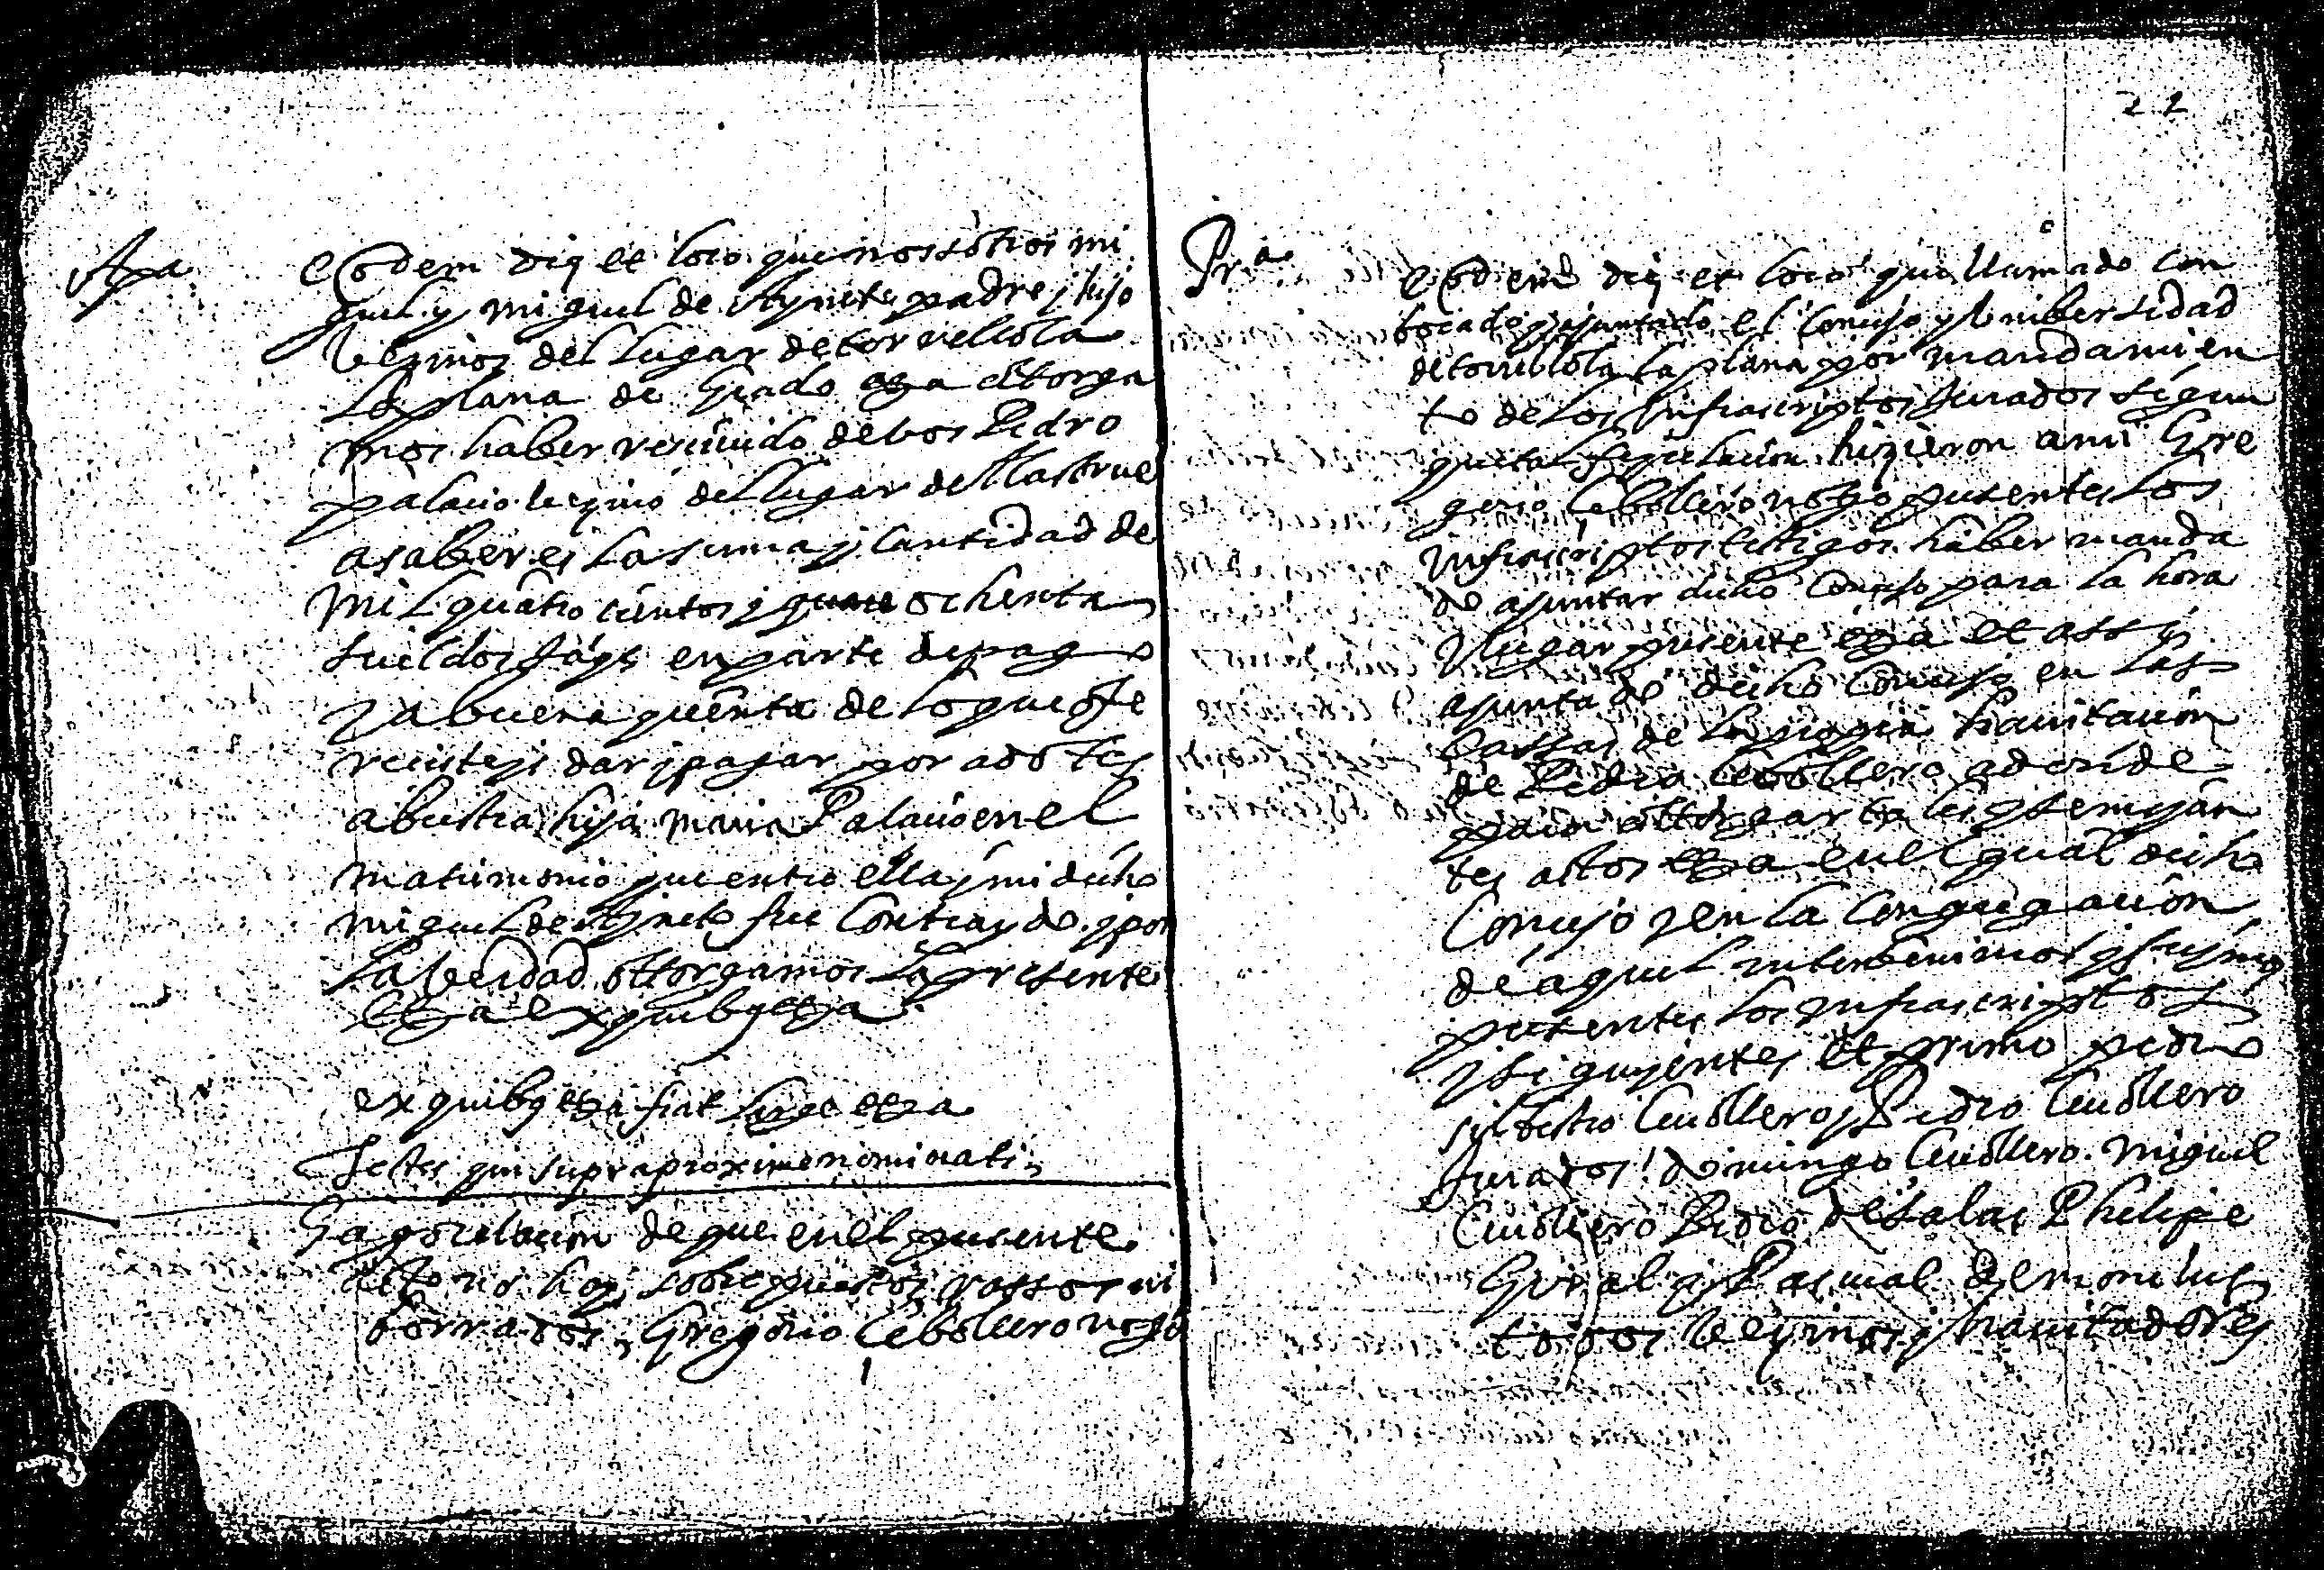 Apa
eodem die et loco que nossotros mi
guel y miguel de Aynete padre y hijo
vezinos del lugar de torrellola
la plana de grado etca attorga
mos haber recivido de vos Pedro
palacio vezino del lugar de Mastrue
a saber es la suma y cantidad de
mil quatro cientos y ochenta
sueldos jaqs en parte de pago
y a buena quenta de lo que ofre
cistejs dar y pagar por adote
a buestra hija maria Palacio en el
matrimonio que entre ella y mi dicho
miguel de Aynete fue contraydo y por
la verdad attorgamos la presente
etca ex quibus etca
ex quibus etca fiat large etca
Testes qui supra proxime nominati
Ha por relacion de que en el presente
acto no hay sobrepuestos rassos ni
borrados Gregorio Cebollero noto
22
Pra
eodem die et loco que llamado con
bocado y ajuntado el Concejo y Unibersidad
de torrellola la plana por mandamien
to de los infrascriptos jurados segun
que tal relacion hizieron a mi Gre
gorio Cebollero noto presentes los
infrascriptos testigos haber manda
do ajuntar dicho Concejo para la hora
y lugar presente etca et assi
ajuntado dicho Concejo en las
cassas de la propia havitacion
de Pedro Cebollero adonde
para attorgar tales y semejan
tes actos etca en el qual dicho
Concejo y en la Congregacion
de aquel interbenimos y fuymos
presentes los infrascriptos
y siguientes et primo pedro
silbestro Cebollero y Pedro Cebollero
Jurados domingo Cebollero miguel
Cebollero Pedro de Salas Phelipe
Gural y Pascual de monclus
todos vezinos y havitadores